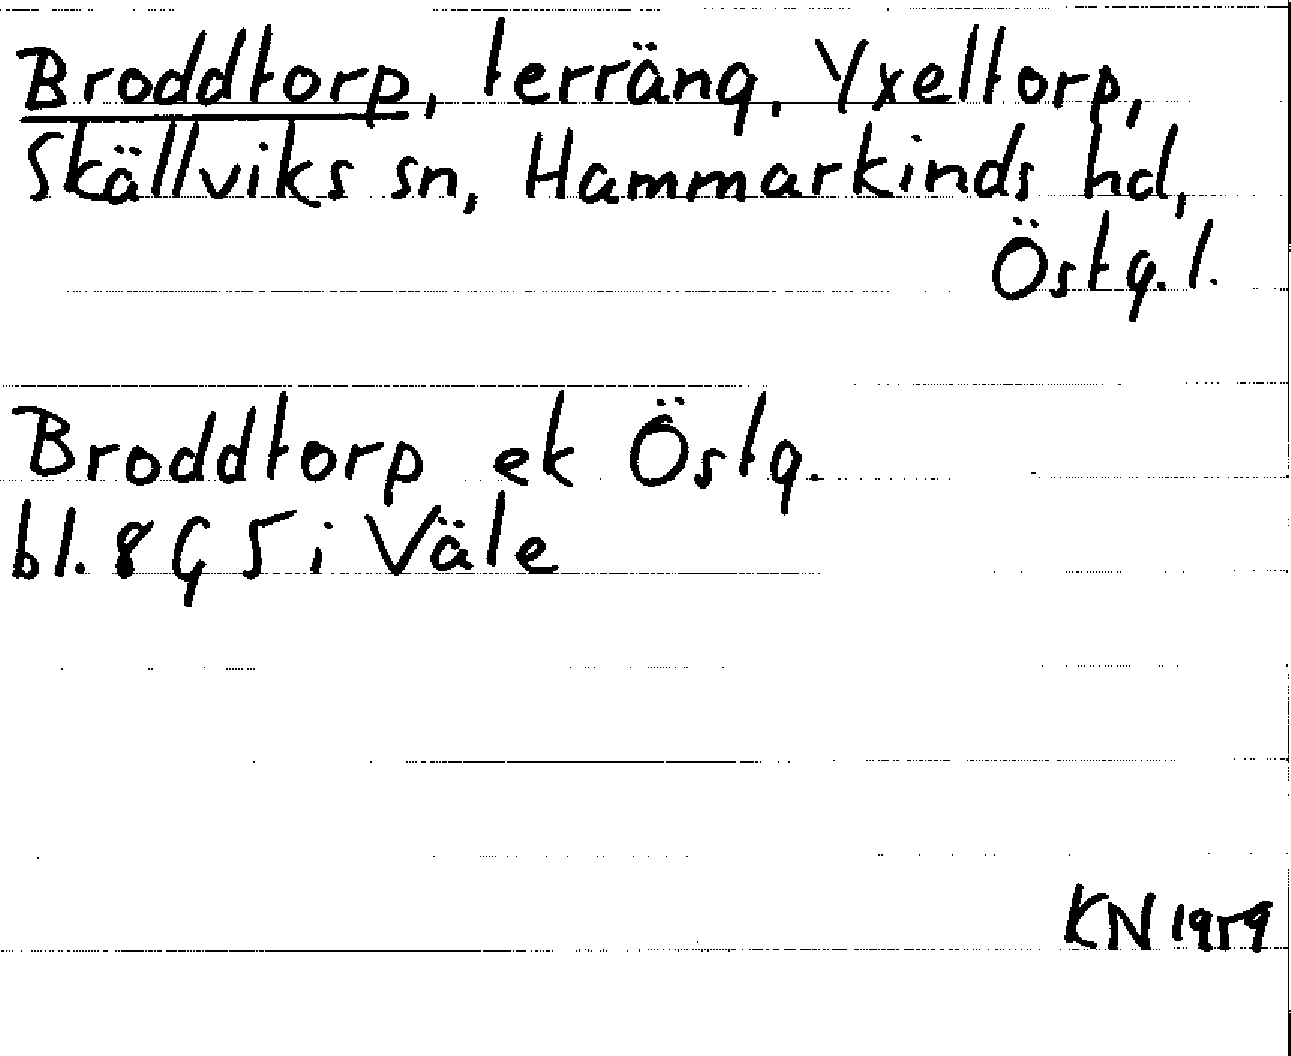 Broddtorp, terräng, Yxeltorp,
Skällviks sn, Hammarkinds hd,
Östg. l.
Broddtorp ek Östg.
bl. 8 G 5 i Väle
KN 1959